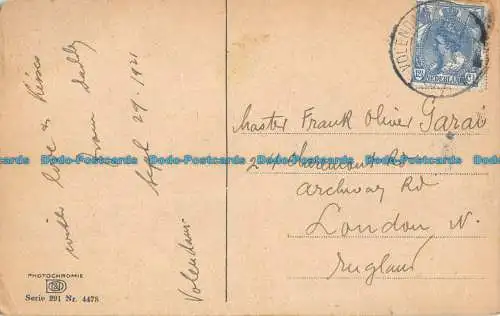 with love & Kisses
from daddy
Sept 29. 1921
Volendam.
PHOTOCHROMIE
Serie 291 Nr. 4478
VOLENDAM
NEDERLAND
12½
Master Frank Oliver Garai
24 Claremont Rd
Archway Rd
London N.
England
Dodo-Postcards Dodo-Postcards Dodo-Postcards Dodo-Postcards Dodo-Postcards